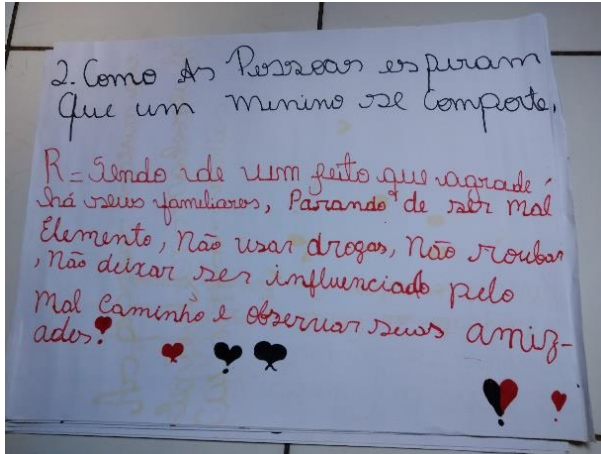 2. Como As Pessoas esperam
Que um menino se Comporte.
R = Sendo de um jeito que agrade
há seus familiares, Parando de ser mal
Elemento, Não usar drogas, Não roubar
, Não deixar ser influenciado pelo
Mal Caminho e observar suas amiz-
ades!